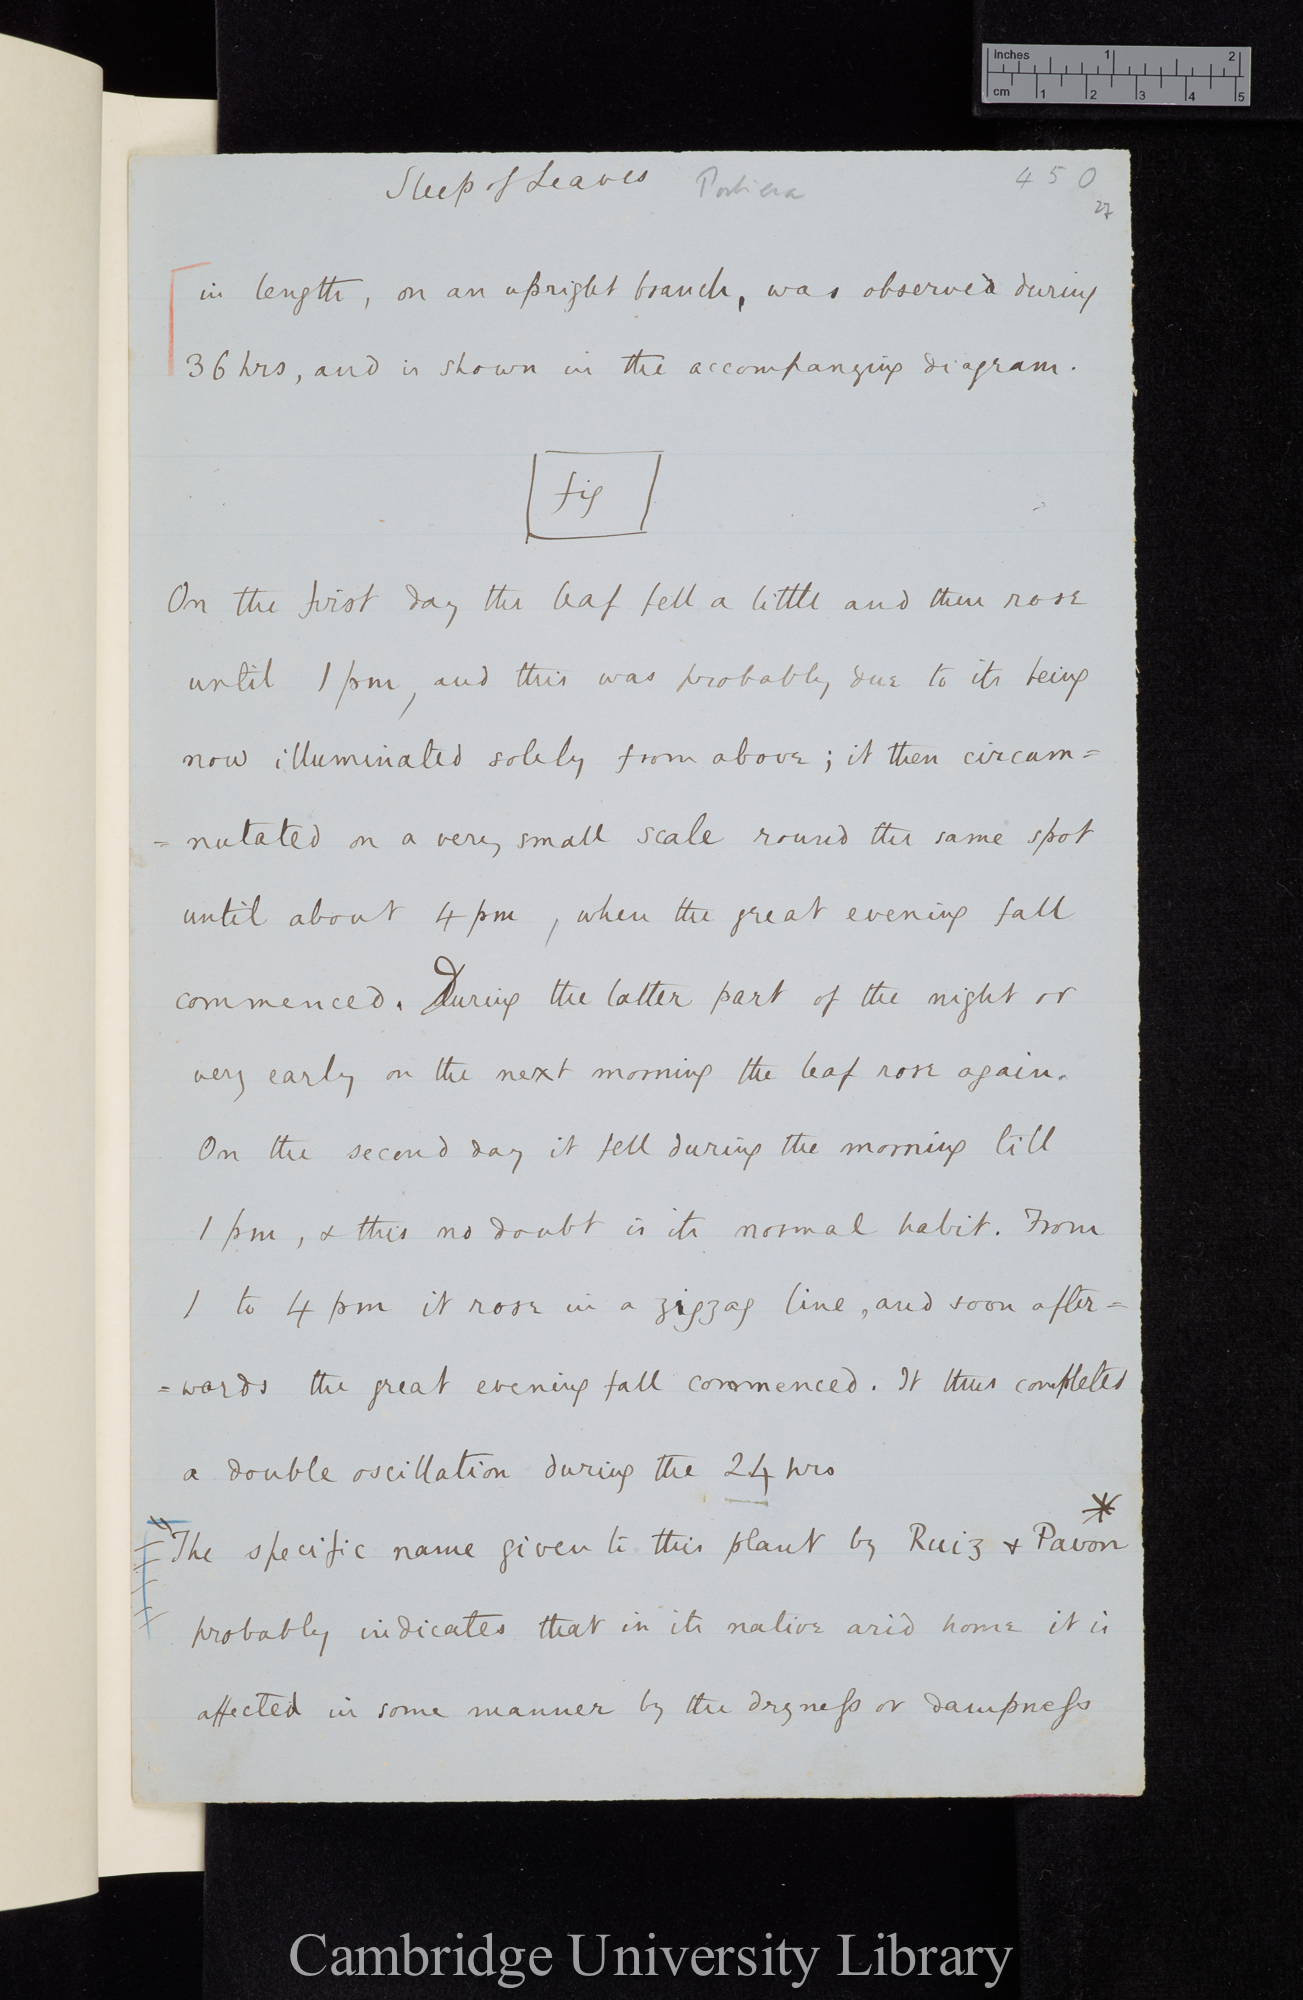 Inches 1 2
cm 1 2 3 4 5
Sleep of Leaves Porliera 450
27
in length, on an upright branch, was observed during
36 hrs, and is shown in the accompanying diagram.
fig
On the first day the leaf fell a little and then rose
until 1 pm, and this was probably due to its being
now illuminated solely from above; it then circum=
=nutated on a very small scale round the same spot
until about 4 pm, when the great evening fall
commenced. During the latter part of the night or
very early on the next morning the leaf rose again.
On the second day it fell during the morning till
1 pm, & this no doubt is its normal habit. From
1 to 4 pm it rose in a zigzag line, and soon after=
=wards the great evening fall commenced. It thus completed
a double oscillation during the 24 hrs
The specific name given to this plant by Ruiz & Pavon *
probably indicates that in its native arid home it is
affected in some manner by the dryness or dampness
Cambridge University Library